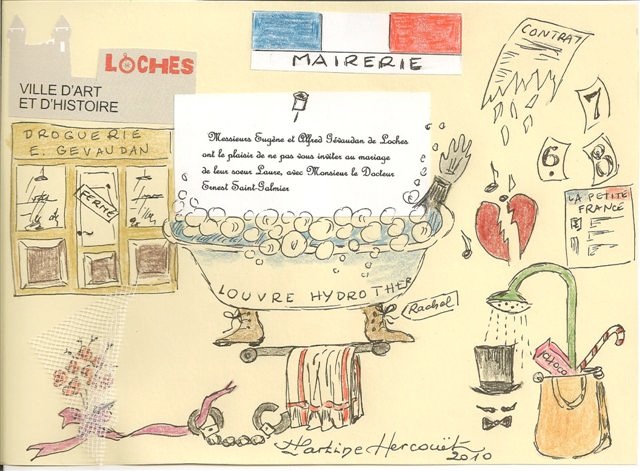 LOCHES
VILLE D'ART
ET D'HISTOIRE
MAIRERIE
CONTRAT
7
6.
8
DROGUERIE
E. GEVAUDAN
FERMÉ
Messieurs Eugène et Alfred Gévaudan de Loches
ont le plaisir de ne pas vous inviter au mariage
de leur soeur Laure, avec Monsieur le Docteur
Ernest Saint-Galmier
LA PETITE
FRANCE
LOUVRE HYDROTHER
Rachel
CHOCO
Martine Hercouët
2010